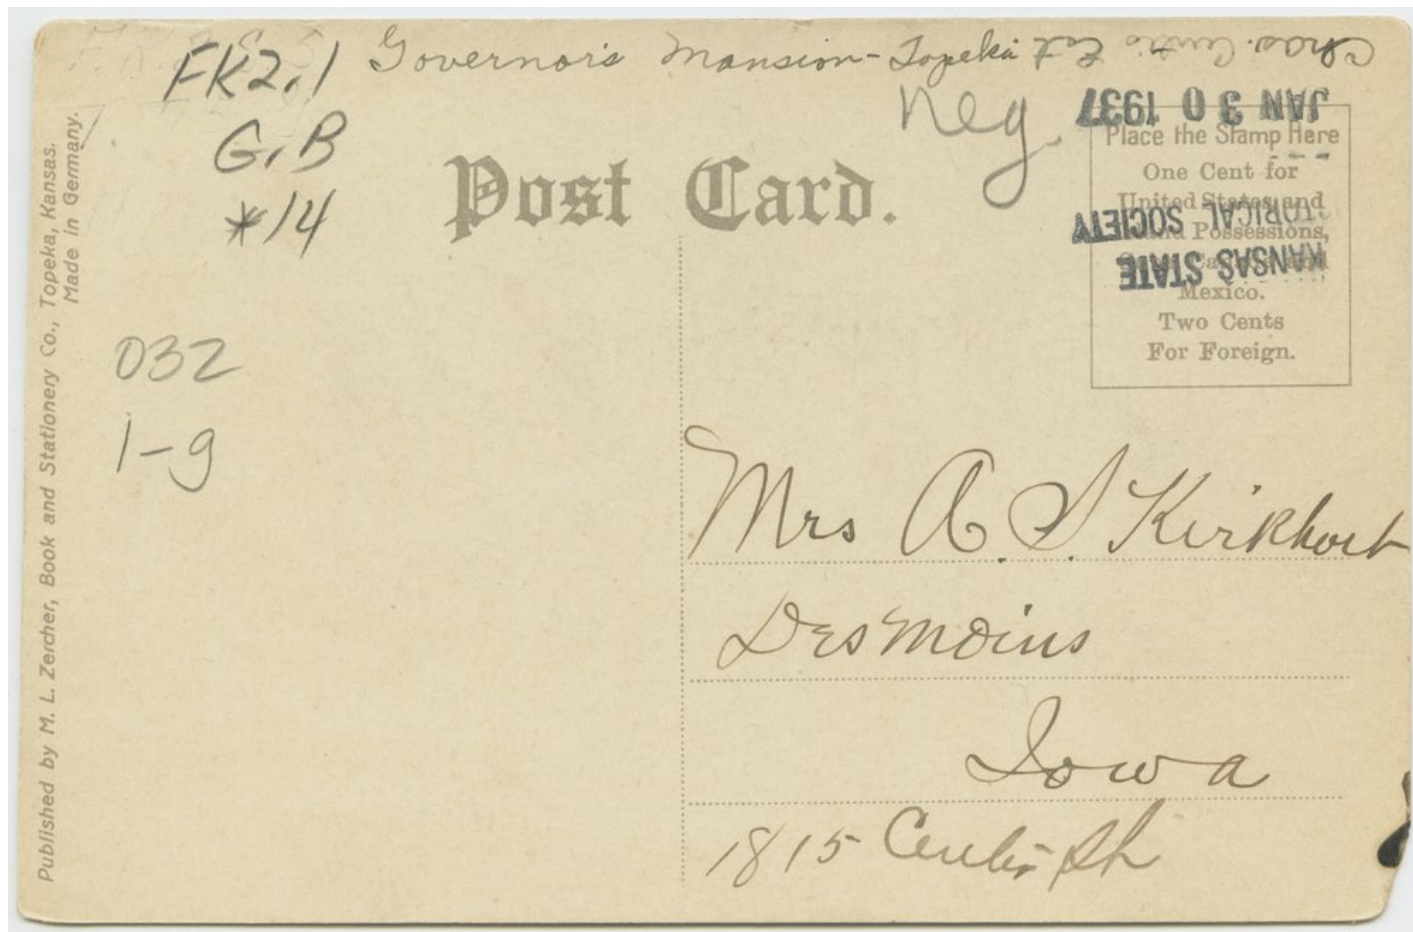 FK2.1 Governor's Mansion - Topeka
G.B
*14
Neg.
Chas. Curtis Est
JAN 30 1937
KANSAS STATE
TORICAL SOCIETY
032
1-g
Post Card.
Place the Stamp Here
One Cent for
United States and
Possessions,
Mexico.
Two Cents
For Foreign.
Published by M. L. Zercher, Book and Stationery Co., Topeka, Kansas.
Made in Germany.
Mrs A. S. Kirkhart
DesMoins
Iowa
1815